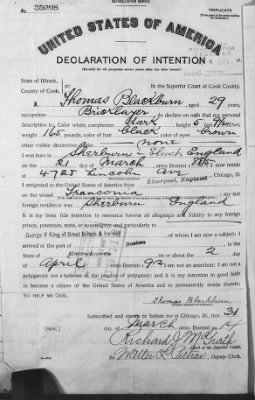 TRIPLICATE
No. 35298
UNITED STATES OF AMERICA
DECLARATION OF INTENTION
(Invalid for all purposes seven years after the date hereof)
State of Illinois,
County of Cook. In the Superior Court of Cook County.
I, Thomas Blackburn, aged 29 years,
occupation Bricklayer, do declare on oath that my personal
description is: Color white, complexion Dark, height 5
weight 165 pounds, color of hair black, color of eyes brown
other visible distinctive marks none
I was born in Sherburn England
on the 21 day of March, anno Domini I now reside
at 4728 Lincoln Ave, Chicago, Ill.
I emigrated to the United States of America from Liverpool, England
on the vessel Franconia my last
foreign residence was Sherburn England
It is my bona fide intention to renounce forever all allegiance and fidelity to any foreign
prince, potentate, state, or sovereignty, and particularly to
George V King of Great Britain & Ireland of whom I am now a subject; I
arrived at the port of Boston
State of on or about the 2 day
of April, anno Domini I am not an anarchist; I am not a
polygamist nor a believer in the practice of polygamy; and it is my intention in good faith
to become a citizen of the United States of America and to permanently reside therein:
SO HELP ME GOD.
Thomas Blackburn
Subscribed and sworn to before me at Chicago, Ill., this 31
[SEAL] day of March, anno Domini
Richard J McGrath
Clerk of the Superior Court.
By Walter Deputy Clerk.